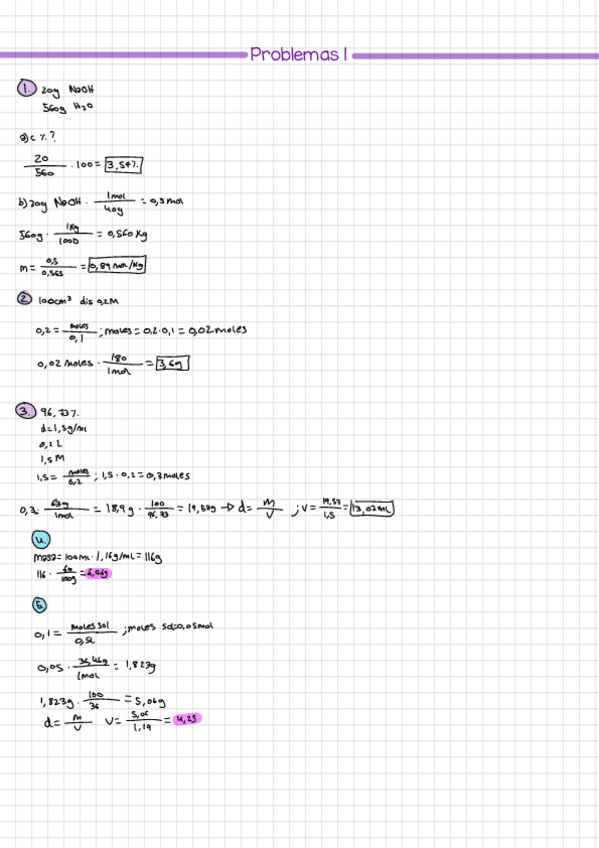 Problemas 1
1. 20g NaOH
560g H₂O
a) c %?
20/560 · 100 = 3,57%
b) 20g NaOH · 1mol/40g = 0,5 mol
560g · 1kg/1000 = 0,560 Kg
m = 0,5/0,565 = 0,89 mol/Kg
2 100cm³ dis 0,2M
0,2 = moles/0,1 ; moles = 0,2·0,1 = 0,02 moles
0,02 moles · 180/1mol = 3,6g
3. 96,73%
d=1,5g/mL
0,2 L
1,5 M
1,5 = moles/0,2 ; 1,5·0,2 = 0,3 moles
0,3 · 63g/1mol = 18,9g · 100/96,73 = 19,53g → d = m/V ; V = 19,53/1,5 = 13,02mL
4.
masa = 100mL · 1,16g/mL = 116g
116 · 6g/100g = 6,96g
5.
0,1 = moles sol/0,5L ; moles sol=0,05mol
0,05 · 36,46g/1mol = 1,823g
1,823g · 100/36 = 5,06g
d = m/V V = 5,06/1,19 = 4,25